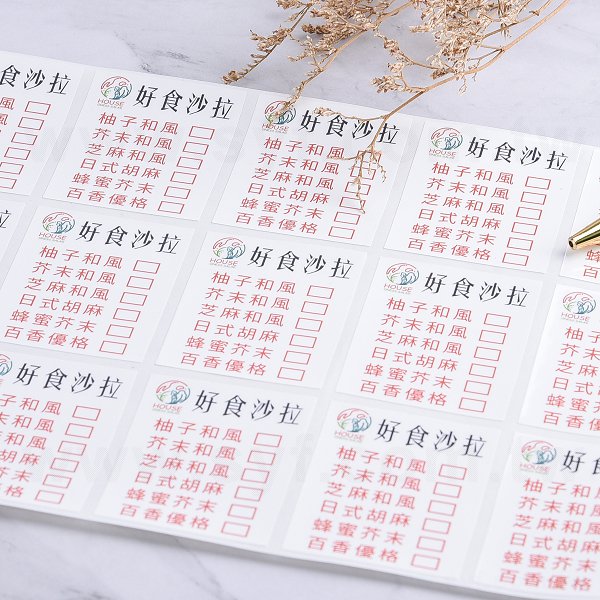 食沙拉
和風
和風
和風
胡麻
芥末
優格
HOUSE
好食沙拉
柚子和風
芥末和風
芝麻和風
日式胡麻
蜂蜜芥末
百香優格
好食沙拉
柚子和風
芥末和風
芝麻和風
日式胡麻
蜂蜜芥末
百香優格
HOUSE
好食沙拉
柚子和風
芥末和風
芝麻和風
日式胡麻
蜂蜜芥末
百香優格
HOUSE
好食沙拉
柚子和風
芥末和風
芝麻和風
日式胡麻
蜂蜜芥末
百香優格
HOUSE
好食沙拉
柚子和風
芥末和風
芝麻和風
日式胡麻
蜂蜜芥末
百香優格
HOUSE
好食沙拉
柚子和風
芥末和風
芝麻和風
日式胡麻
蜂蜜芥末
百香優格
HOUSE
柚子和
芥末和
芝麻和
日式胡
蜂蜜芥
百香優
好食沙拉
柚子和風
芥末和風
芝麻和風
日式胡麻
蜂蜜芥末
百香優格
HOUSE
好食沙拉
柚子和風
芥末和風
芝麻和風
日式胡麻
蜂蜜芥末
百香優格
HOUSE
好食沙拉
柚子和風
芥末和風
芝麻和風
日式胡麻
蜂蜜芥末
百香優格
HOUSE
好食
柚子和風
芥末和風
芝麻和風
日式胡麻
蜂蜜芥末
百香優格